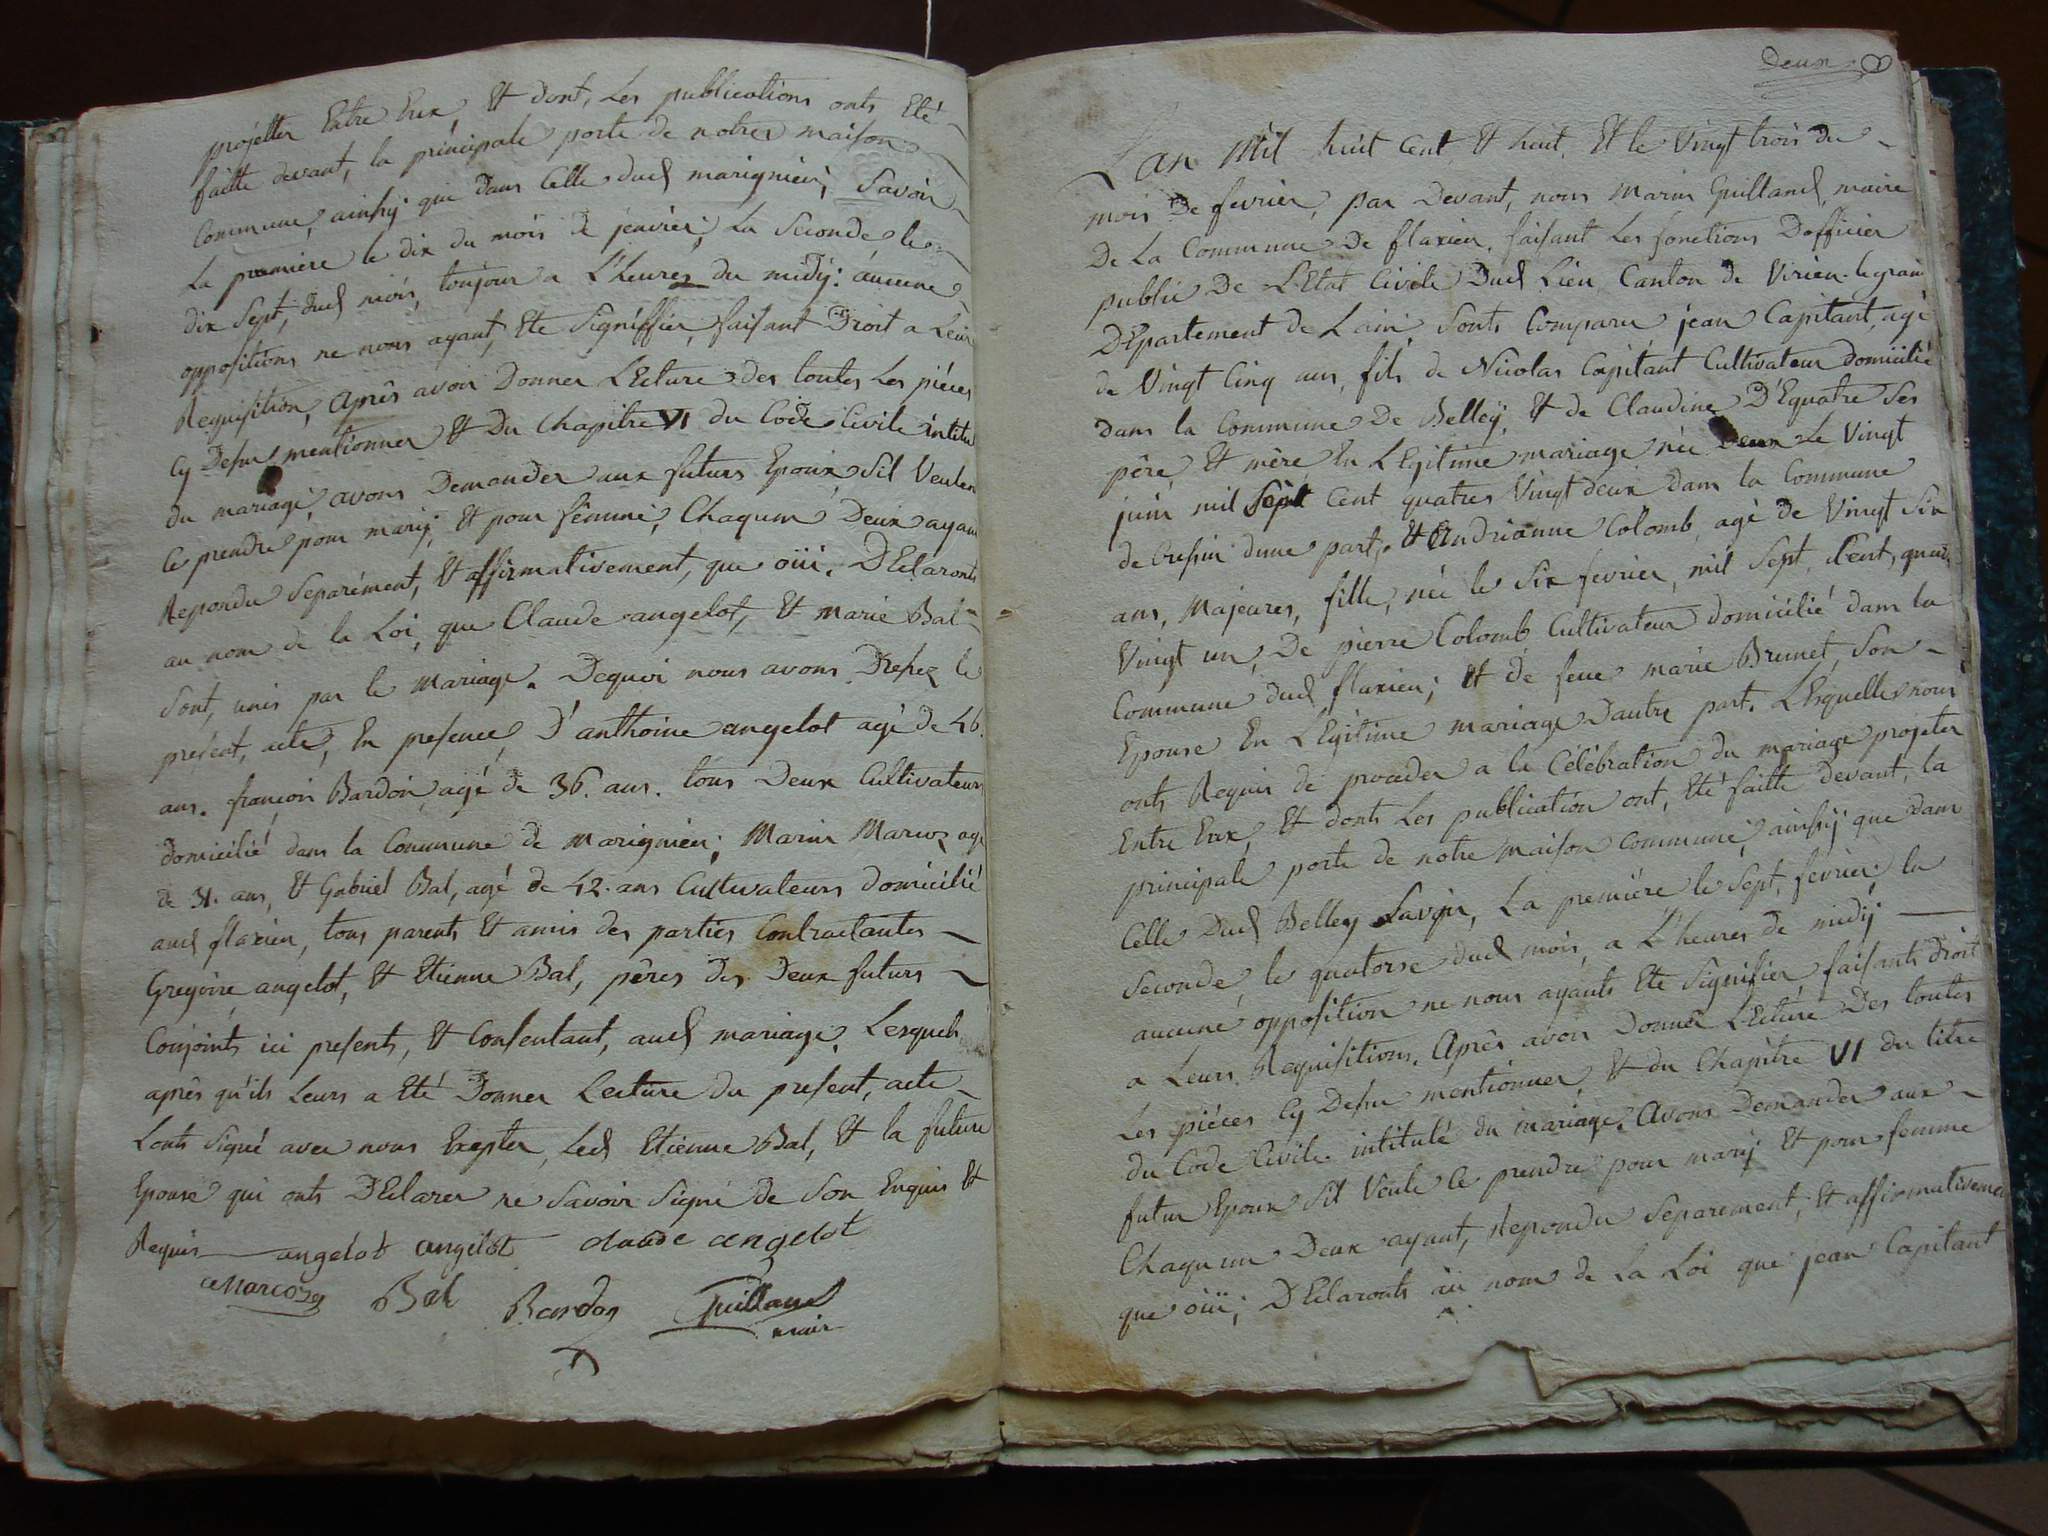 projetter Entre Eux, Et dont, Les publications onts Eté
faitte devant, la principale porte de notres maison
Commune, ainsÿ que dans Celle dud marignieu, Savoir
La premiere le dix du mois de jenvier, La Seconde le
dix Sept, dud mois, toujour a L'heures du midÿ: aucune
oppositions ne nous ayant, Ete Signiffier, faisant Droit a Leur
Requisition, Après avoir Donner LEcture des toutes Les piéces
Cy Desus mentionner Et Du Chapitre VI du Code Civile intitu
du mariage, avons Demander aux futurs Epoux Sil Veulen
Ce prendre pour marÿ, Et pour femme, Chaqun Deux ayan
Repondu Separément, Et affirmativement, que oüi. DEclaronts
au nom de la Loi, que Claude angelot, Et marie Bal
Sont, unis par le Mariage. Dequoi nous avons Dressez le
present, acte, En presence D'anthoine angelot agé de 46.
ans. françois Bardon agé de 36. ans. tous Deux Cultivateurs
domicilié dans la Commune de Marignieu; Marin Marcoz agé
de 31. ans, Et Gabriel Bal, agé de 42. ans Cultivateurs domicilié
aud flaxieu, tous parents Et amis des parties Contractantes
Gregoire angelot, Et Etienne Bal, pères des Deux futurs
Conjoints ici presents, Et Consentant, aud mariage. Lesquels
après qu'ils Leurs a Eté Donner Lecture du present, acte
Lonts Signé avec nous Exepter, Led Etienne Bal, Et la future
Epouse qui onts DEclarer ne Savoir Signé de Son Enquis Et
Requis angelot angelot claude angelot
Marcoz Bal Bardon Guilland
mair
Deux
L'an Mil huit Cent Et huit, Et le Vingt trois du
mois De fevrier, par Devant, nous Marin Guilland, maire
De La Commune De flaxieu, faisant Les fonctions Dofficier
public De L'Etat Civile Dud Lieu Canton de Virieu-le grand
DEpartement de Lain Sonts Comparu jean Capitant, agé
de Vingt Cinq ans, fils de Nicolas Capitant Cultivateur domicilié
dans la Commune De Belleÿ, Et de Claudine D'Equatre Ses
père Et mère En LEgitime mariage née Deux Le Vingt
juin mil Sept Cent quatres Vingt deux dans la Commune
de Cressin dune part, Et Andrianne Colomb, agé de Vingt Six
ans, Majeures, fille, née le Six fevrier, mil Sept Cent, quatr
Vingt un, De pierre Colomb Cultivateur domicilié dans la
Commune dud flaxieu; Et de feue marie Brunet, Son
Epouse En LEgitime mariage Dautre part. LEsquelles nous
onts Requis de proceder a la Célébration du mariage projeter
Entre Eux, Et donts Les publication ont, Eté faitte Devant, la
principale porte de notre maison Commune, ainsÿ que dans
Celle Dud Belley Savoir, La première le Sept, fevrier la
Seconde, le quatorse dud mois, a L'heures de midÿ
aucune opposition ne nous ayants Ete Signifier, faisants Droit
a Leurs Requisitions. Après avoir Donner LEcture Des toutes
Les piéces Cy Desus mentionner, Et du Chapitre VI du titre
du Code Civile intitulé du mariage. Avons Demander aux
futur Epoux Sil Veule Ce prendre pour marÿ Et pour femme
Chaqu'un Deux ayant, Repondu Separement, Et affirmativemen
que oüi; DEclaronts au nom de La Loi que jean Capitant